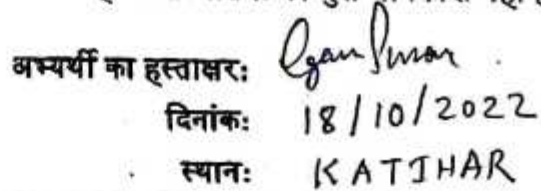 अभ्यर्थी का हस्ताक्षर:
दिनांक: 18/10/2022
स्थान: KATIHAR